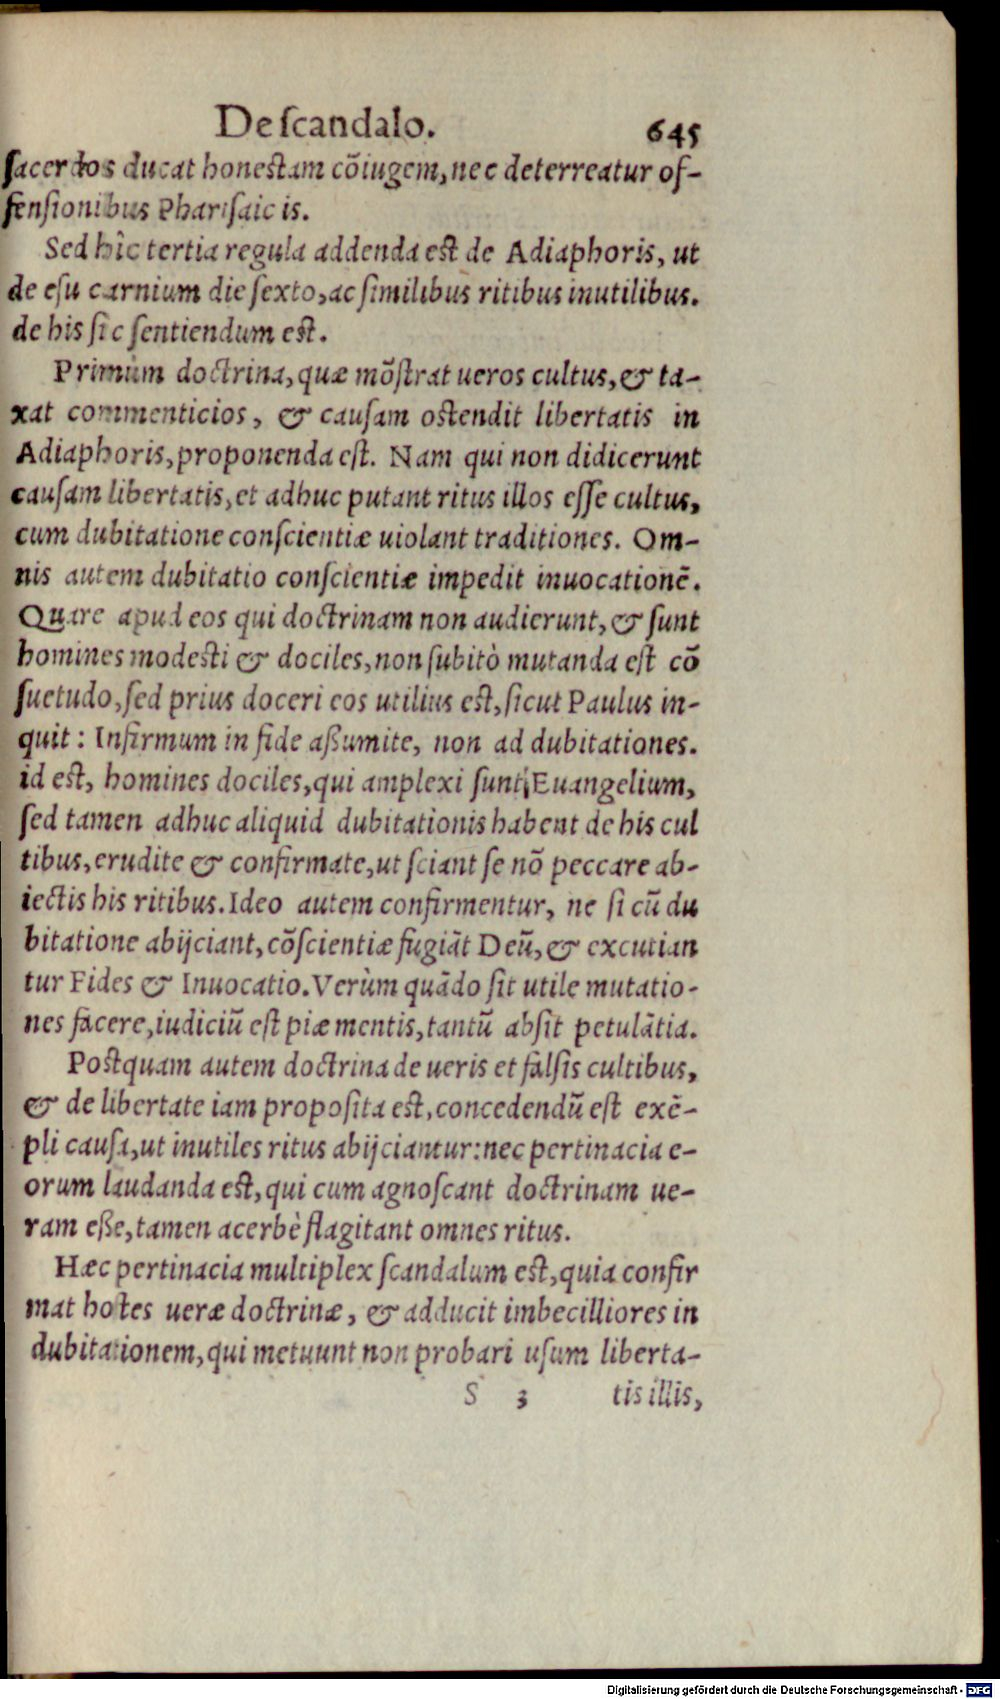 De ſcandalo. 645
ſacerdos ducat honeſtam cõiugem, nec deterreatur of-
fenſionibus Phariſaicis.
Sed hîc tertia regula addenda eſt de Adiaphoris, ut
de eſu carnium die ſexto, ac ſimilibus ritibus inutilibus.
de his ſic ſentiendum eſt.
Primùm doctrina, quæ mõſtrat ueros cultus, & ta-
xat commenticios, & cauſam oſtendit libertatis in
Adiaphoris, proponenda eſt. Nam qui non didicerunt
cauſam libertatis, et adhuc putant ritus illos eſſe cultus,
cum dubitatione conſcientiæ uiolant traditiones. Om-
nis autem dubitatio conſcientiæ impedit inuocationẽ.
Quare apud eos qui doctrinam non audierunt, & ſunt
homines modeſti & dociles, non ſubitò mutanda eſt cõ
ſuetudo, ſed prius doceri eos utilius eſt, ſicut Paulus in-
quit: Infirmum in fide aßumite, non ad dubitationes.
id eſt, homines dociles, qui amplexi ſunt Euangelium,
ſed tamen adhuc aliquid dubitationis habent de his cul
tibus, erudite & confirmate, ut ſciant ſe nõ peccare ab-
iectis his ritibus. Ideo autem confirmentur, ne ſi cũ du
bitatione abijciant, cõſcientiæ fugiãt Deũ, & excutian
tur Fides & Inuocatio. Verùm quãdo ſit utile mutatio-
nes facere, iudiciũ eſt piæ mentis, tantũ abſit petulãtia.
Poſtquam autem doctrina de ueris et falſis cultibus,
& de libertate iam propoſita eſt, concedendũ eſt exẽ-
pli cauſa, ut inutiles ritus abijciantur: nec pertinacia e-
orum laudanda eſt, qui cum agnoſcant doctrinam ue-
ram eße, tamen acerbè flagitant omnes ritus.
Hæc pertinacia multiplex ſcandalum eſt, quia confir
mat hoſtes ueræ doctrinæ, & adducit imbecilliores in
dubitationem, qui metuunt non probari uſum liberta-
S 3 tis illis,
Digitalisierung gefördert durch die Deutsche Forschungsgemeinschaft - DFG